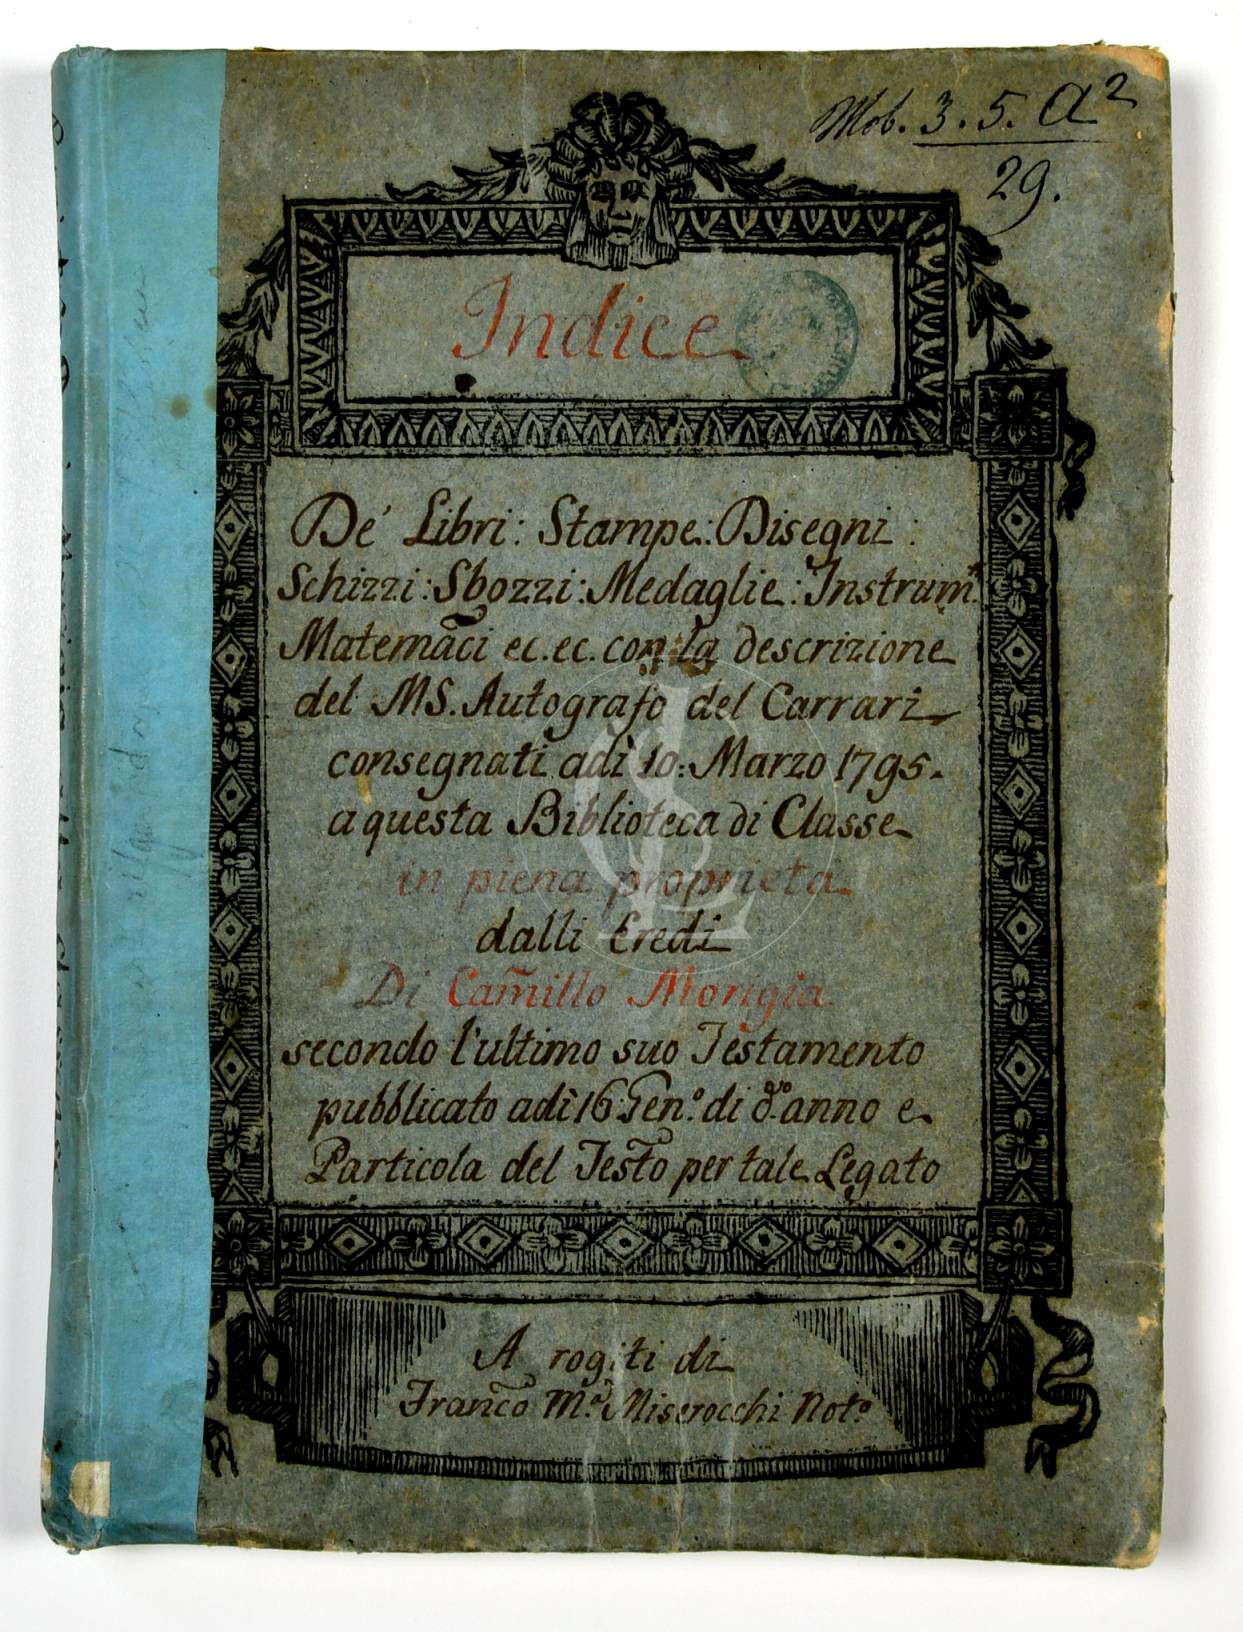 Mob. 3. 5. A²
29.
Indice
De' Libri: Stampe: Disegni:
Schizzi: Sbozzi: Medaglie: Instrum.ti
Matemãci ec. ec. con la descrizione
del MS. Autografo del Carrari
consegnati adì 10: Marzo 1795.
a questa Biblioteca di Classe
in piena proprietà
dalli Eredi
Di Cam̃illo Morigia
secondo l'ultimo suo Testamento
pubblicato adì 16 Gen.º di d.º anno e
Particola del Testo per tale Legato
A rogiti di
Franco M.ª Miserocchi Not.º